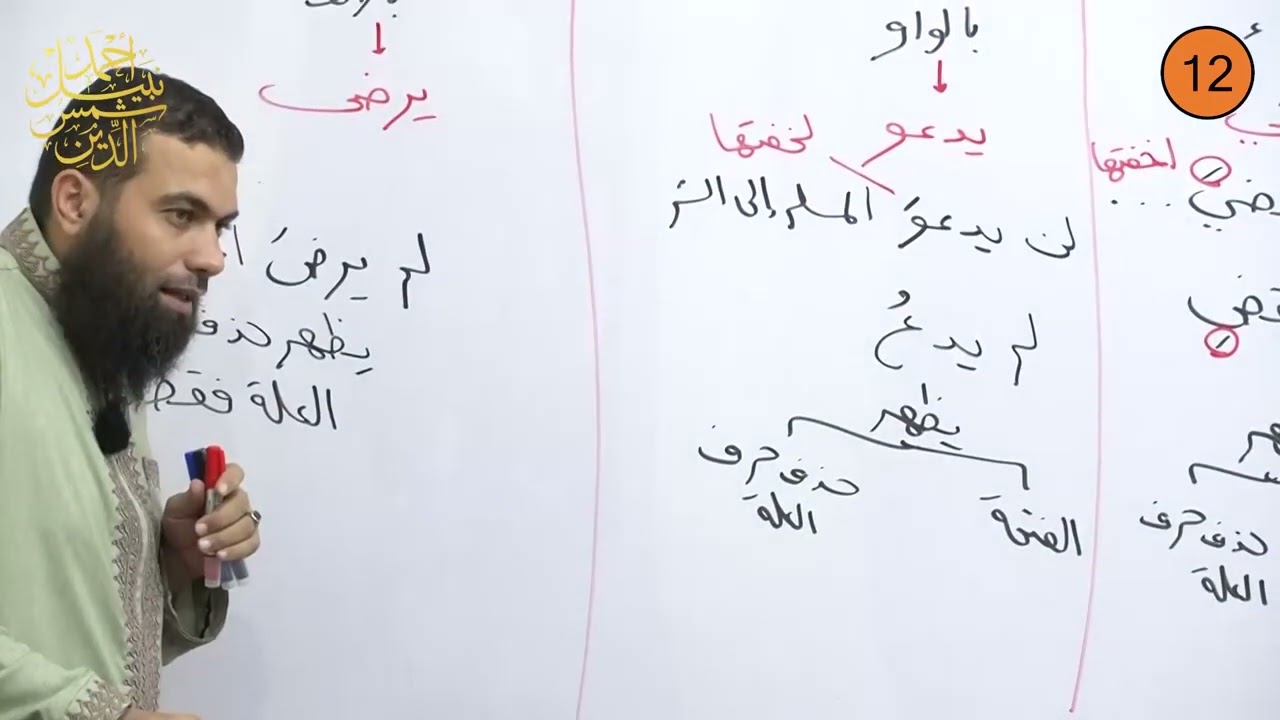 أحمد
نبيل
شمس
الدين
12
اخفتها
حذف حرف
العلة
بالواو
يدعو
لخفتها
لن يدعوَ المسلم إلى الشر
لم يدعُ
يظهر
الفتحة
حذف حرف
العلة
يرضى
لم يرضَ
يظهر حذف
العلة فقط